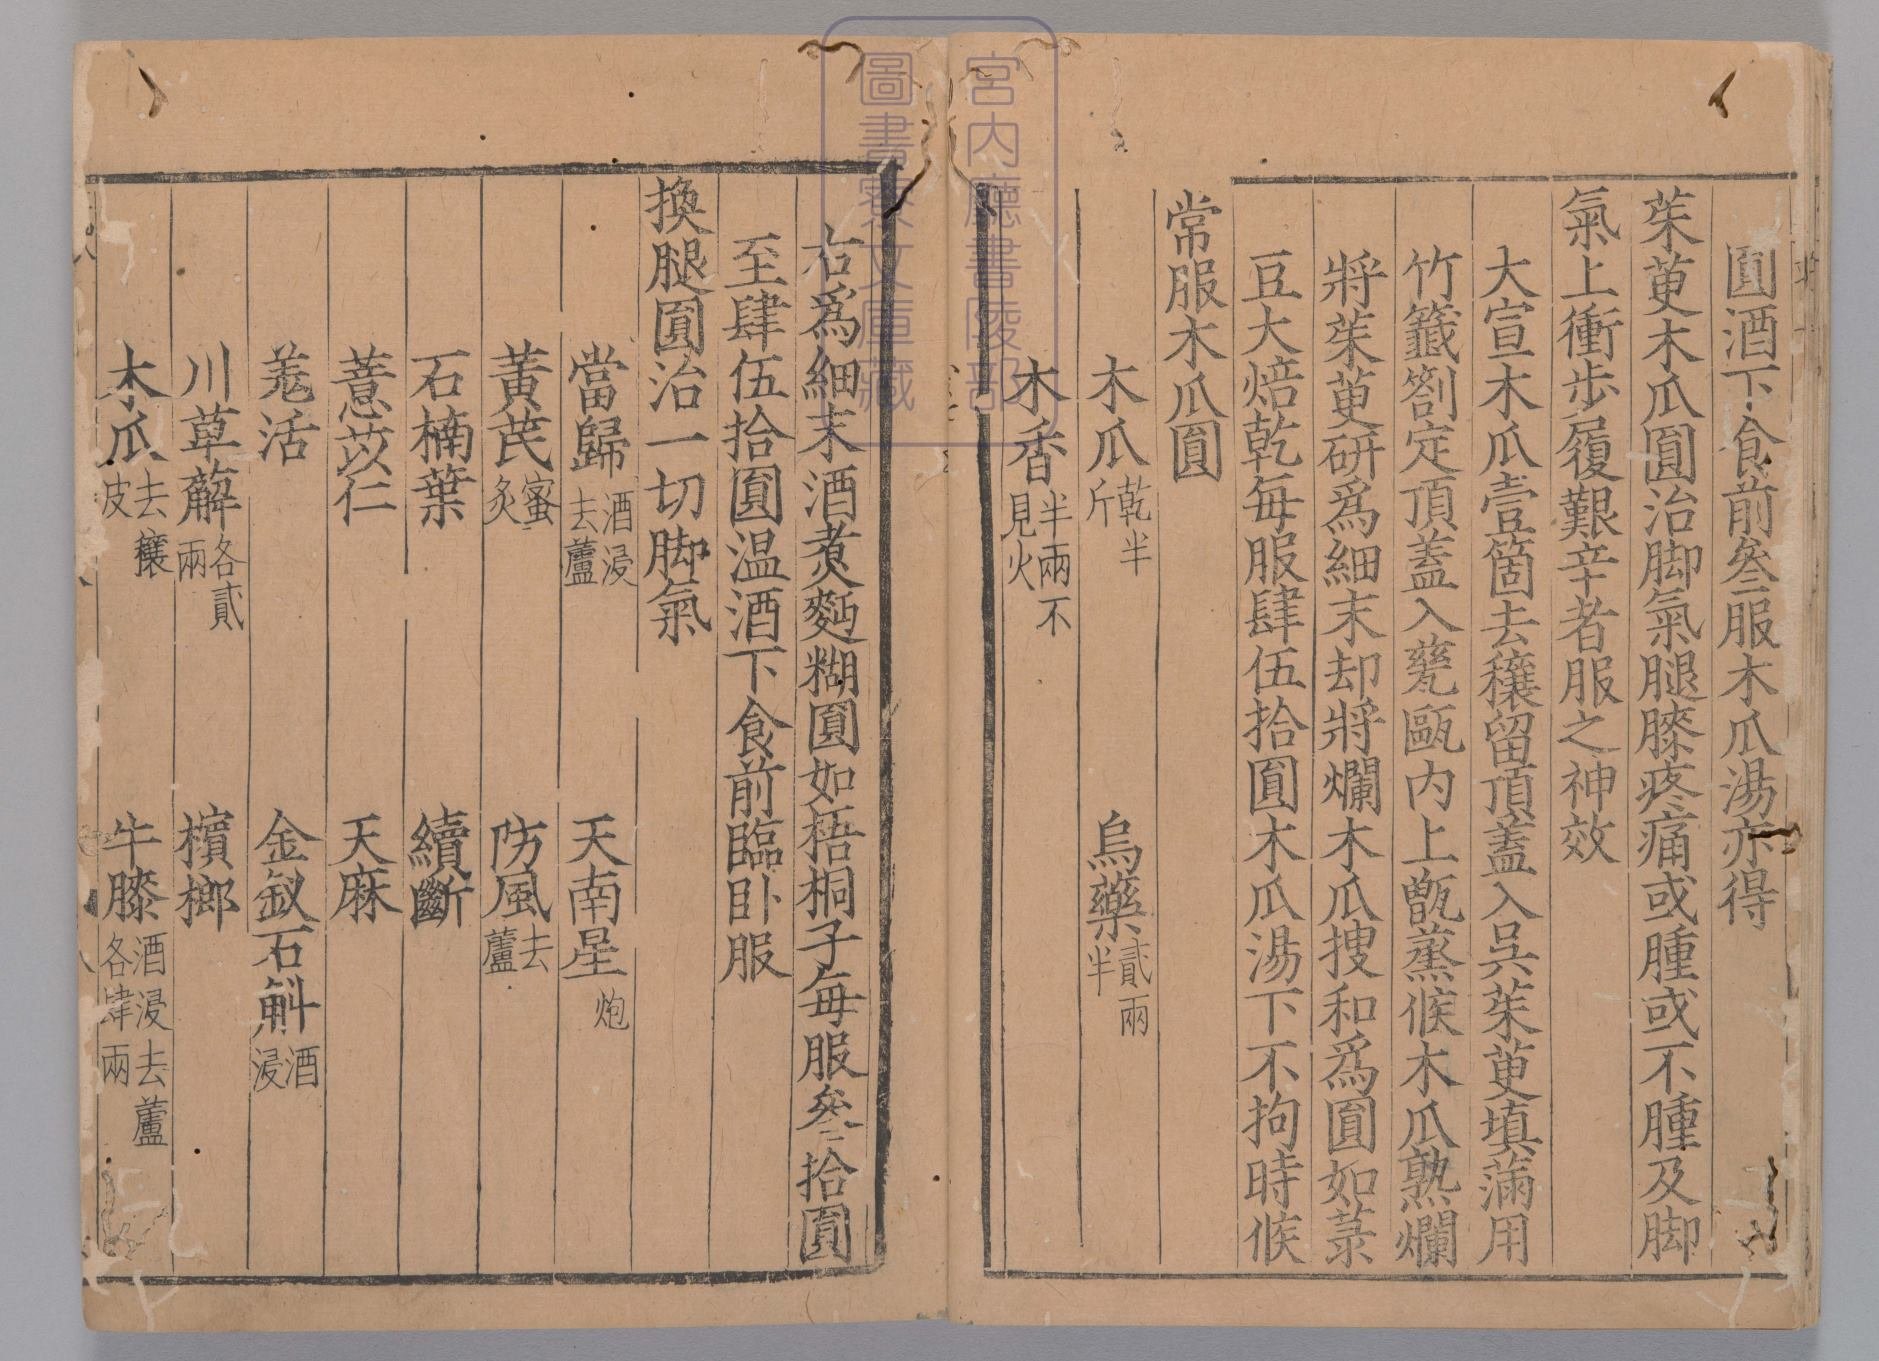 圎酒下食前叁服木瓜湯亦得
茱萸木瓜圎治脚氣腿膝疼痛或腫或不腫及脚
氣上衝步履艱辛者服之神效
大宣木瓜壹箇去穰留頂蓋入吳茱萸填滿用
竹籤劄定頂蓋入甆甌内上甑蒸候木瓜熟爛
將茱萸研爲細末却將爛木瓜搜和爲圎如菉
豆大焙乾每服肆伍拾圎木瓜湯下不拘時候
常服木瓜圎
木瓜乾半斤 烏藥貳兩半
木香半兩不見火
右爲細末酒煮麪糊圎如梧桐子每服叁拾圎
至肆伍拾圎温酒下食前臨卧服
換腿圎治一切脚氣
當歸酒浸去蘆 天南星炮
黃芪蜜炙 防風去蘆
石楠葉 續斷
薏苡仁 天麻
羗活 金釵石斛酒浸
川萆薢各貳兩 檳榔
木瓜去穰皮 牛膝酒浸去蘆各肆兩
宮内廳書陵部
圖書寮文庫藏